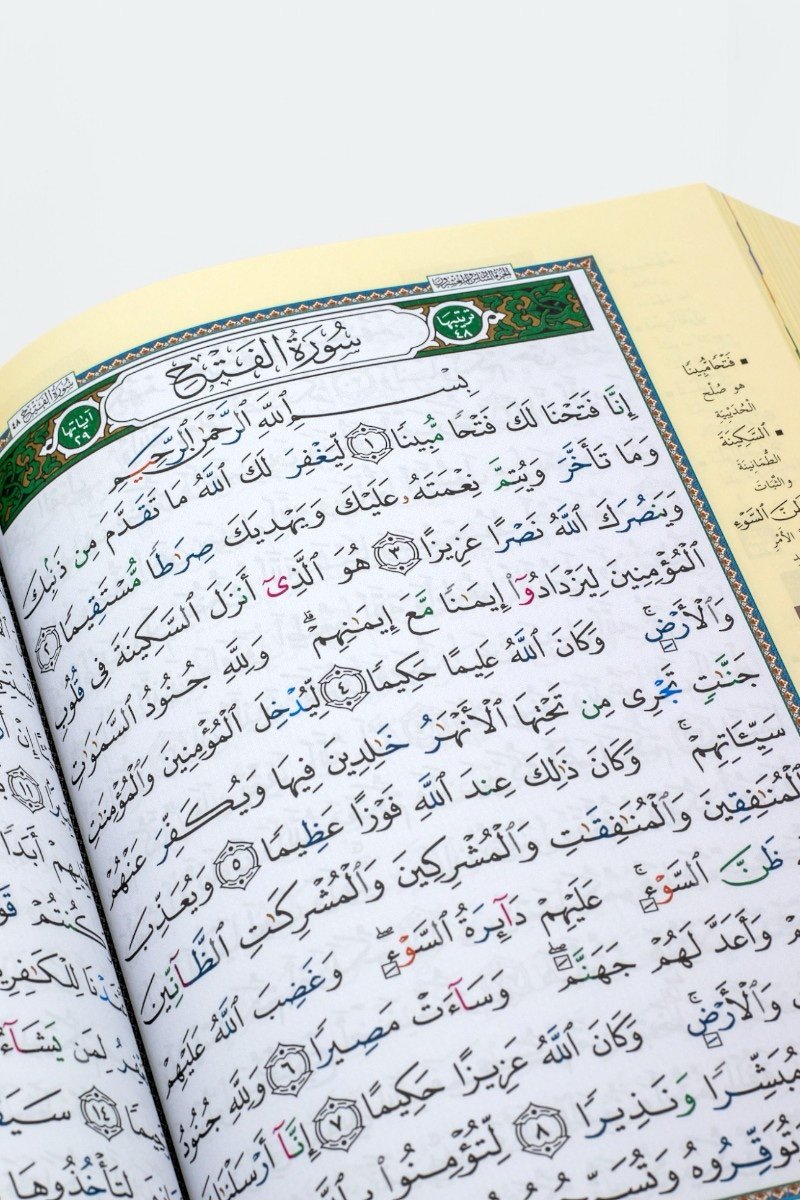 الجزء السادس والعشرون
سُورَةُ الفَتْحِ ٤٨
ترتيبها ٤٨
سُورَةُ الفَتْحِ
آياتها ٢٩
بِسْمِ ٱللَّهِ ٱلرَّحْمَٰنِ ٱلرَّحِيمِ
إِنَّا فَتَحْنَا لَكَ فَتْحًا مُّبِينًا ١ لِّيَغْفِرَ لَكَ ٱللَّهُ مَا تَقَدَّمَ مِن ذَنۢبِكَ
وَمَا تَأَخَّرَ وَيُتِمَّ نِعْمَتَهُۥ عَلَيْكَ وَيَهْدِيَكَ صِرَٰطًا مُّسْتَقِيمًا ٢
وَيَنصُرَكَ ٱللَّهُ نَصْرًا عَزِيزًا ٣ هُوَ ٱلَّذِىٓ أَنزَلَ ٱلسَّكِينَةَ فِى قُلُوبِ
ٱلْمُؤْمِنِينَ لِيَزْدَادُوٓا۟ إِيمَٰنًا مَّعَ إِيمَٰنِهِمْ ۗ وَلِلَّهِ جُنُودُ ٱلسَّمَٰوَٰتِ
وَٱلْأَرْضِ ۚ وَكَانَ ٱللَّهُ عَلِيمًا حَكِيمًا ٤ لِّيُدْخِلَ ٱلْمُؤْمِنِينَ وَٱلْمُؤْمِنَٰتِ
جَنَّٰتٍ تَجْرِى مِن تَحْتِهَا ٱلْأَنْهَٰرُ خَٰلِدِينَ فِيهَا وَيُكَفِّرَ عَنْهُمْ
سَيِّـَٔاتِهِمْ ۚ وَكَانَ ذَٰلِكَ عِندَ ٱللَّهِ فَوْزًا عَظِيمًا ٥ وَيُعَذِّبَ
ٱلْمُنَٰفِقِينَ وَٱلْمُنَٰفِقَٰتِ وَٱلْمُشْرِكِينَ وَٱلْمُشْرِكَٰتِ ٱلظَّآنِّينَ
ظَنَّ ٱلسَّوْءِ ۚ عَلَيْهِمْ دَآئِرَةُ ٱلسَّوْءِ ۖ وَغَضِبَ ٱللَّهُ عَلَيْهِمْ
وَأَعَدَّ لَهُمْ جَهَنَّمَ ۖ وَسَآءَتْ مَصِيرًا ٦ وَلِلَّهِ جُنُودُ
وَٱلْأَرْضِ ۚ وَكَانَ ٱللَّهُ عَزِيزًا حَكِيمًا ٧ إِنَّآ أَرْسَلْنَٰكَ
مُبَشِّرًا وَنَذِيرًا ٨ لِّتُؤْمِنُوا۟ بِٱللَّهِ
وَتُوَقِّرُوهُ
فَتْحًا مُّبِينًا
هو صلح
الحديبية
السَّكِينَةَ
الطمأنينة
والثبات
ظَنَّ السَّوْءِ
أَبَدًا
كُنتُمْ
لِلْكَٰفِرِينَ
لِمَن يَشَآءُ
١٤
لِتَأْخُذُوهَا